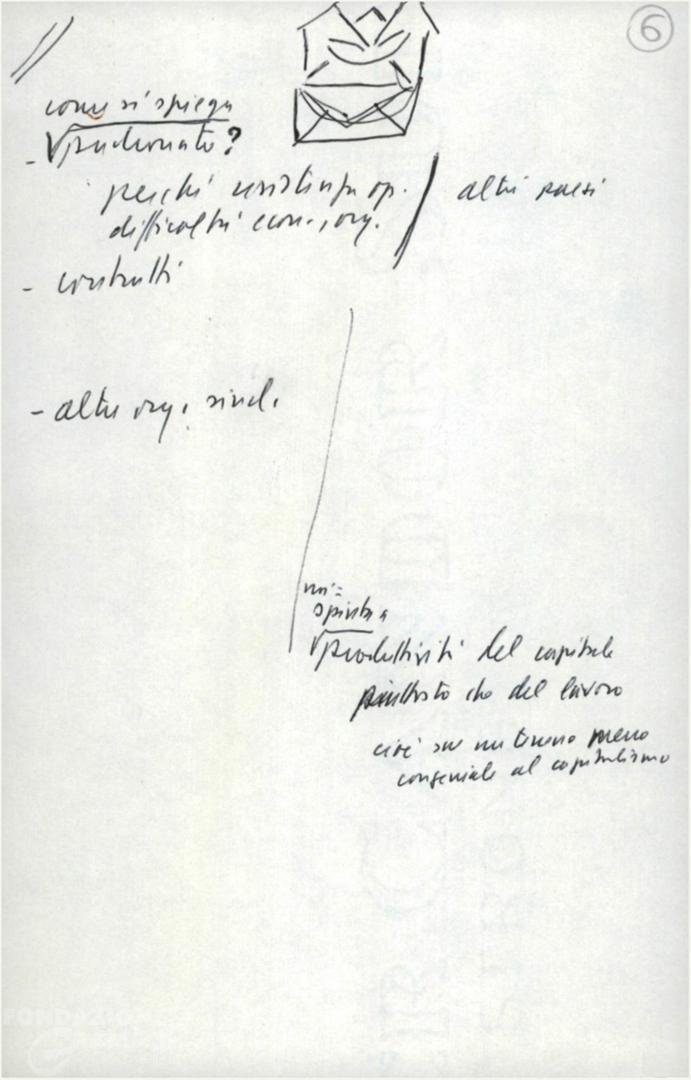 6
come si spiega
- padronato?
perché resistenza op.
difficoltà econ., org.
altri paesi
- contratti
- altre org. sind.
spinta a
produttività del capitale
piuttosto che del lavoro
cioè su un terreno meno
congeniale al capitalismo
FONDAZIONE